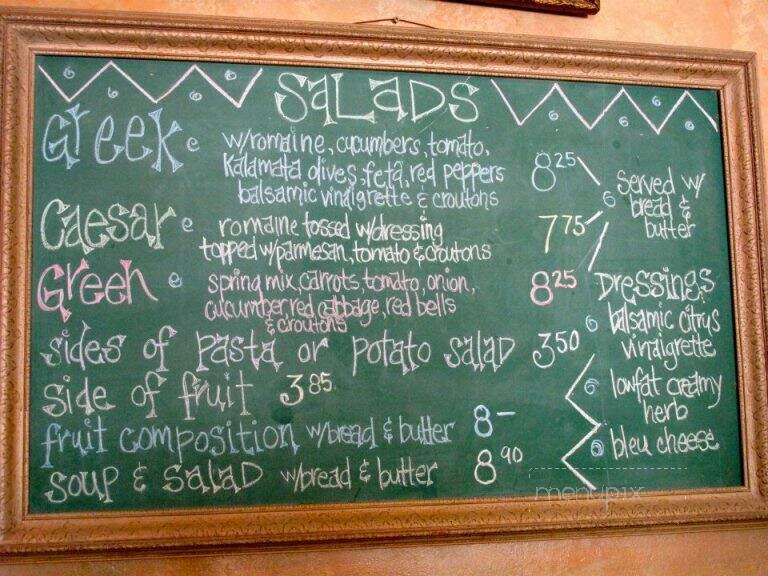 SALADS
Greek w/romaine, cucumbers, tomato,
Kalamata olives, feta, red peppers
balsamic vinaigrette & croutons
8.25
Caesar romaine tossed w/dressing
topped w/parmesan, tomato & croutons
7.75
Green spring mix, carrots, tomato, onion,
cucumber, red cabbage, red bells
& croutons
8.25
Served w/
bread &
butter
sides of pasta or potato salad 3.50
side of fruit 3.85
fruit composition w/bread & butter 8-
soup & salad w/bread & butter 8.90
Dressings
balsamic citrus
vinaigrette
lowfat creamy
herb
bleu cheese
menupix